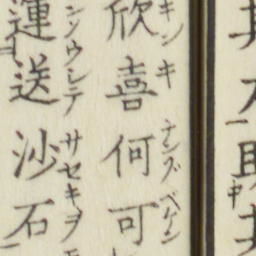 助
欣喜何可
キンキナンゾベケン
運送沙石
ンソウシテサセキヲ